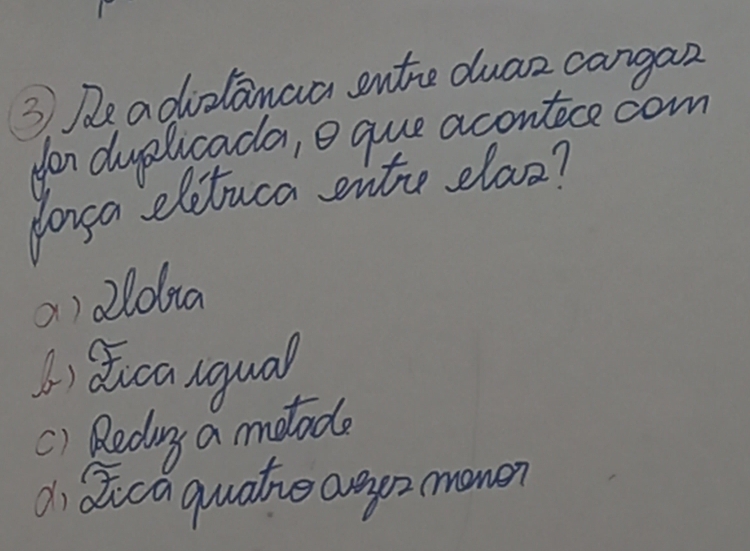 ③ Se a distância entre duas cargas
for duplicada, o que acontece com
força elétrica entre elas?
a) Dobra
b) Fica igual
c) Reduz a metade
d) Fica quatro vezes menor